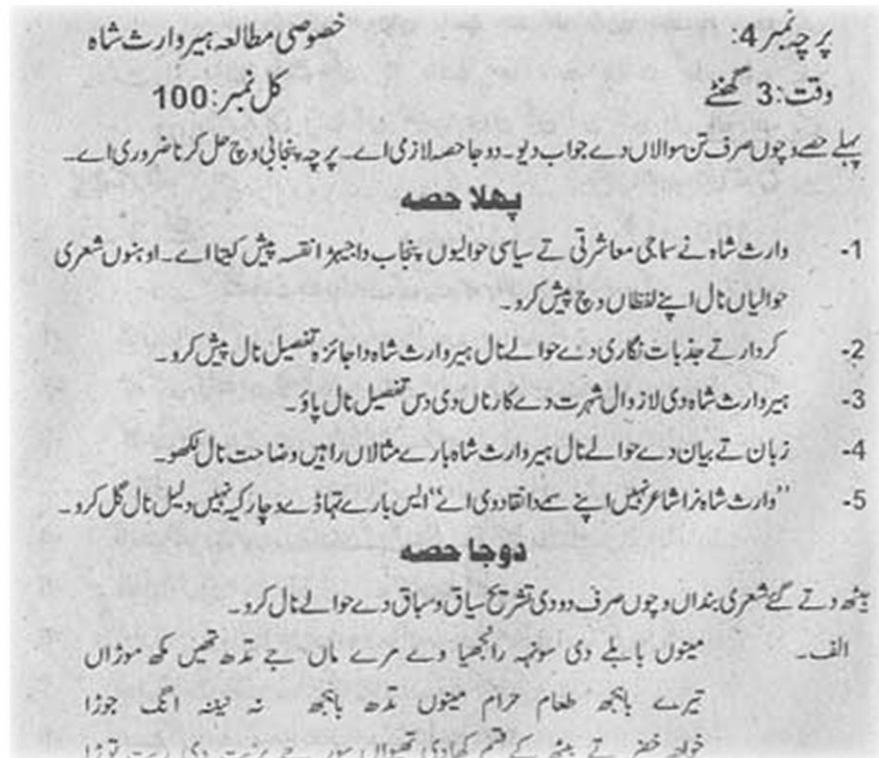 پرچہ نمبر 4: خصوصی مطالعہ ہیر وارث شاہ
وقت: 3 گھنٹے کل نمبر: 100
پہلے حصے وچوں صرف تن سوالاں دے جواب دیو۔ دوجا حصہ لازمی اے۔ پرچہ پنجابی وچ حل کرنا ضروری اے۔
پہلا حصہ
1- وارث شاہ نے سماجی معاشرتی تے سیاسی حوالیوں پنجاب دا جیہڑا نقسہ پیش کیتا اے۔ اوہنوں شعری
حوالیاں نال اپنے لفظاں وچ پیش کرو۔
2- کردار تے جذبات نگاری دے حوالے نال ہیر وارث شاہ دا جائزہ تفصیل نال پیش کرو۔
3- ہیر وارث شاہ دی لازوال شہرت دے کارناں دی دس تفصیل نال پاؤ۔
4- زبان تے بیان دے حوالے نال ہیر وارث شاہ بارے مثالاں راہیں وضاحت نال لکھو۔
5- "وارث شاہ نرا شاعر نہیں اپنے سمے دا نقاد وی اے" ایس بارے تہاڈے وچار کیہ نہیں دلیل نال گل کرو۔
دوجا حصہ
ہیٹھ دتے گئے شعری بنداں وچوں صرف دو دی تشریح سیاق و سباق دے حوالے نال کرو۔
الف۔ مینوں بابلے دی سونہہ رانجھیا وے مرے ماں جے تدھ تھیں مکھ موڑاں
تیرے باہجھ طعام حرام مینوں تدھ باہجھ نہ نینہ انگ جوڑا
خواجہ خضر تے بیٹھ کے قسم کھادی تھیواں سور جے پریت دی ریت توڑا